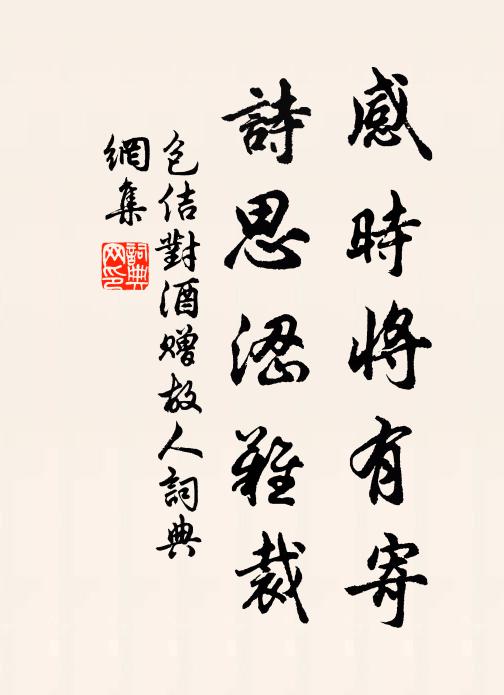 感時將有寄
詩思涩難裁
包佶對酒贈故人詞典
網集
詞典
网印